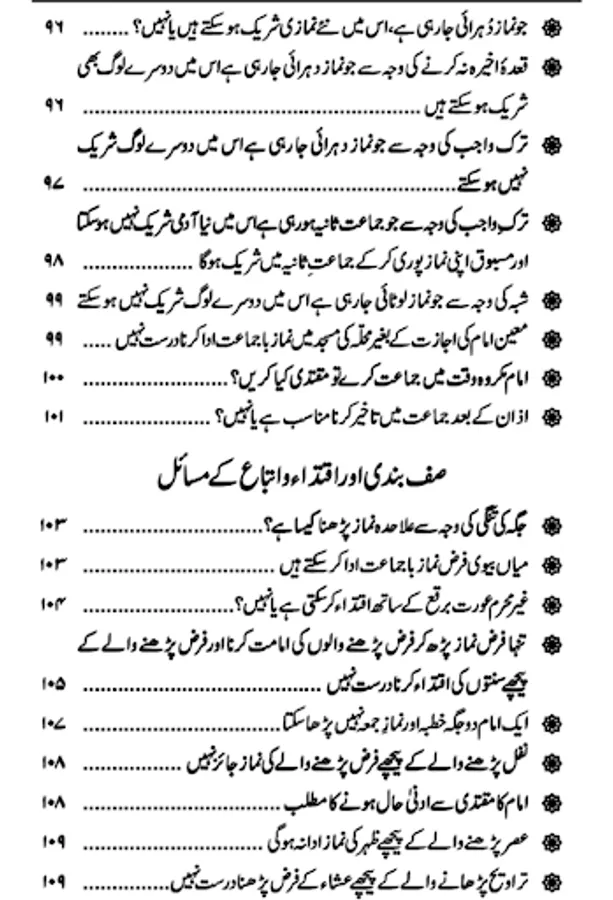 ❁ جو نماز دُہرائی جارہی ہے، اس میں نئے نمازی شریک ہوسکتے ہیں یا نہیں؟ ........ ۹۶
❁ قعدۂ اخیرہ نہ کرنے کی وجہ سے جو نماز دہرائی جارہی ہے اس میں دوسرے لوگ بھی
شریک ہوسکتے ہیں ........ ۹۶
❁ ترک واجب کی وجہ سے جو نماز دہرائی جارہی ہے اس میں دوسرے لوگ شریک
نہیں ہوسکتے ........ ۹۷
❁ ترکِ واجب کی وجہ سے جو جماعت ثانیہ ہورہی ہے اس میں نیا آدمی شریک نہیں ہوسکتا
اور مسبوق اپنی نماز پوری کرکے جماعتِ ثانیہ میں شریک ہوگا ........ ۹۸
❁ شبہ کی وجہ سے جو نماز لوٹائی جارہی ہے اس میں دوسرے لوگ شریک نہیں ہوسکتے ۹۹
❁ معین امام کی اجازت کے بغیر محلّہ کی مسجد میں نماز باجماعت ادا کرنا درست نہیں ..... ۹۹
❁ امام مکروہ وقت میں جماعت کرے تو مقتدی کیا کریں؟ ........ ۱۰۰
❁ اذان کے بعد جماعت میں تاخیر کرنا مناسب ہے یا نہیں؟ ........ ۱۰۱
صف بندی اور اقتداء و اتباع کے مسائل
❁ جگہ کی تنگی کی وجہ سے علاحدہ نماز پڑھنا کیسا ہے؟ ........ ۱۰۳
❁ میاں بیوی فرض نماز باجماعت ادا کرسکتے ہیں ........ ۱۰۳
❁ غیر محرم عورت برقع کے ساتھ اقتداء کرسکتی ہے یا نہیں؟ ........ ۱۰۴
❁ تنہا فرض نماز پڑھ کر فرض پڑھنے والوں کی امامت کرنا اور فرض پڑھنے والے کے
پیچھے سنتوں کی اقتداء کرنا درست نہیں ........ ۱۰۵
❁ ایک امام دو جگہ خطبہ اور نمازِ جمعہ نہیں پڑھا سکتا ........ ۱۰۷
❁ نفل پڑھنے والے کے پیچھے فرض پڑھنے والے کی نماز جائز نہیں ........ ۱۰۸
❁ امام کا مقتدی سے ادنیٰ حال ہونے کا مطلب ........ ۱۰۸
❁ عصر پڑھنے والے کے پیچھے ظہر کی نماز ادا نہ ہوگی ........ ۱۰۹
❁ تراویح پڑھانے والے کے پیچھے عشاء کے فرض پڑھنا درست نہیں ........ ۱۰۹